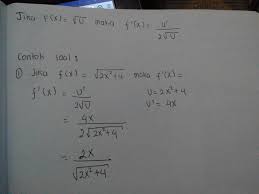 Jika f(x) = √U maka f'(x) = U' / 2√U
Contoh soal :
① Jika f(x) = √2x²+4 maka f'(x) =
f'(x) = U' / 2√U    U = 2x²+4
= 4x / 2√2x²+4    U' = 4x
= 2x / √2x²+4